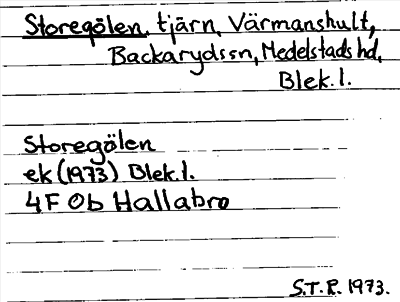 Storegölen, tjärn, Värmanshult,
Backarydssn, Medelstads hd,
Blek. l.
Storegölen
ek (1973) Blek. l.
4F 0b Hallabro
S.T.R. 1973.